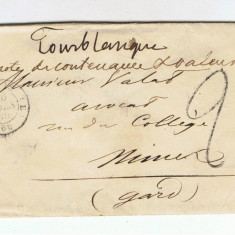 Tourblanque
note de contenance
Monsieur Valat
avocat
rue du College
Nimes
(Gard)
2